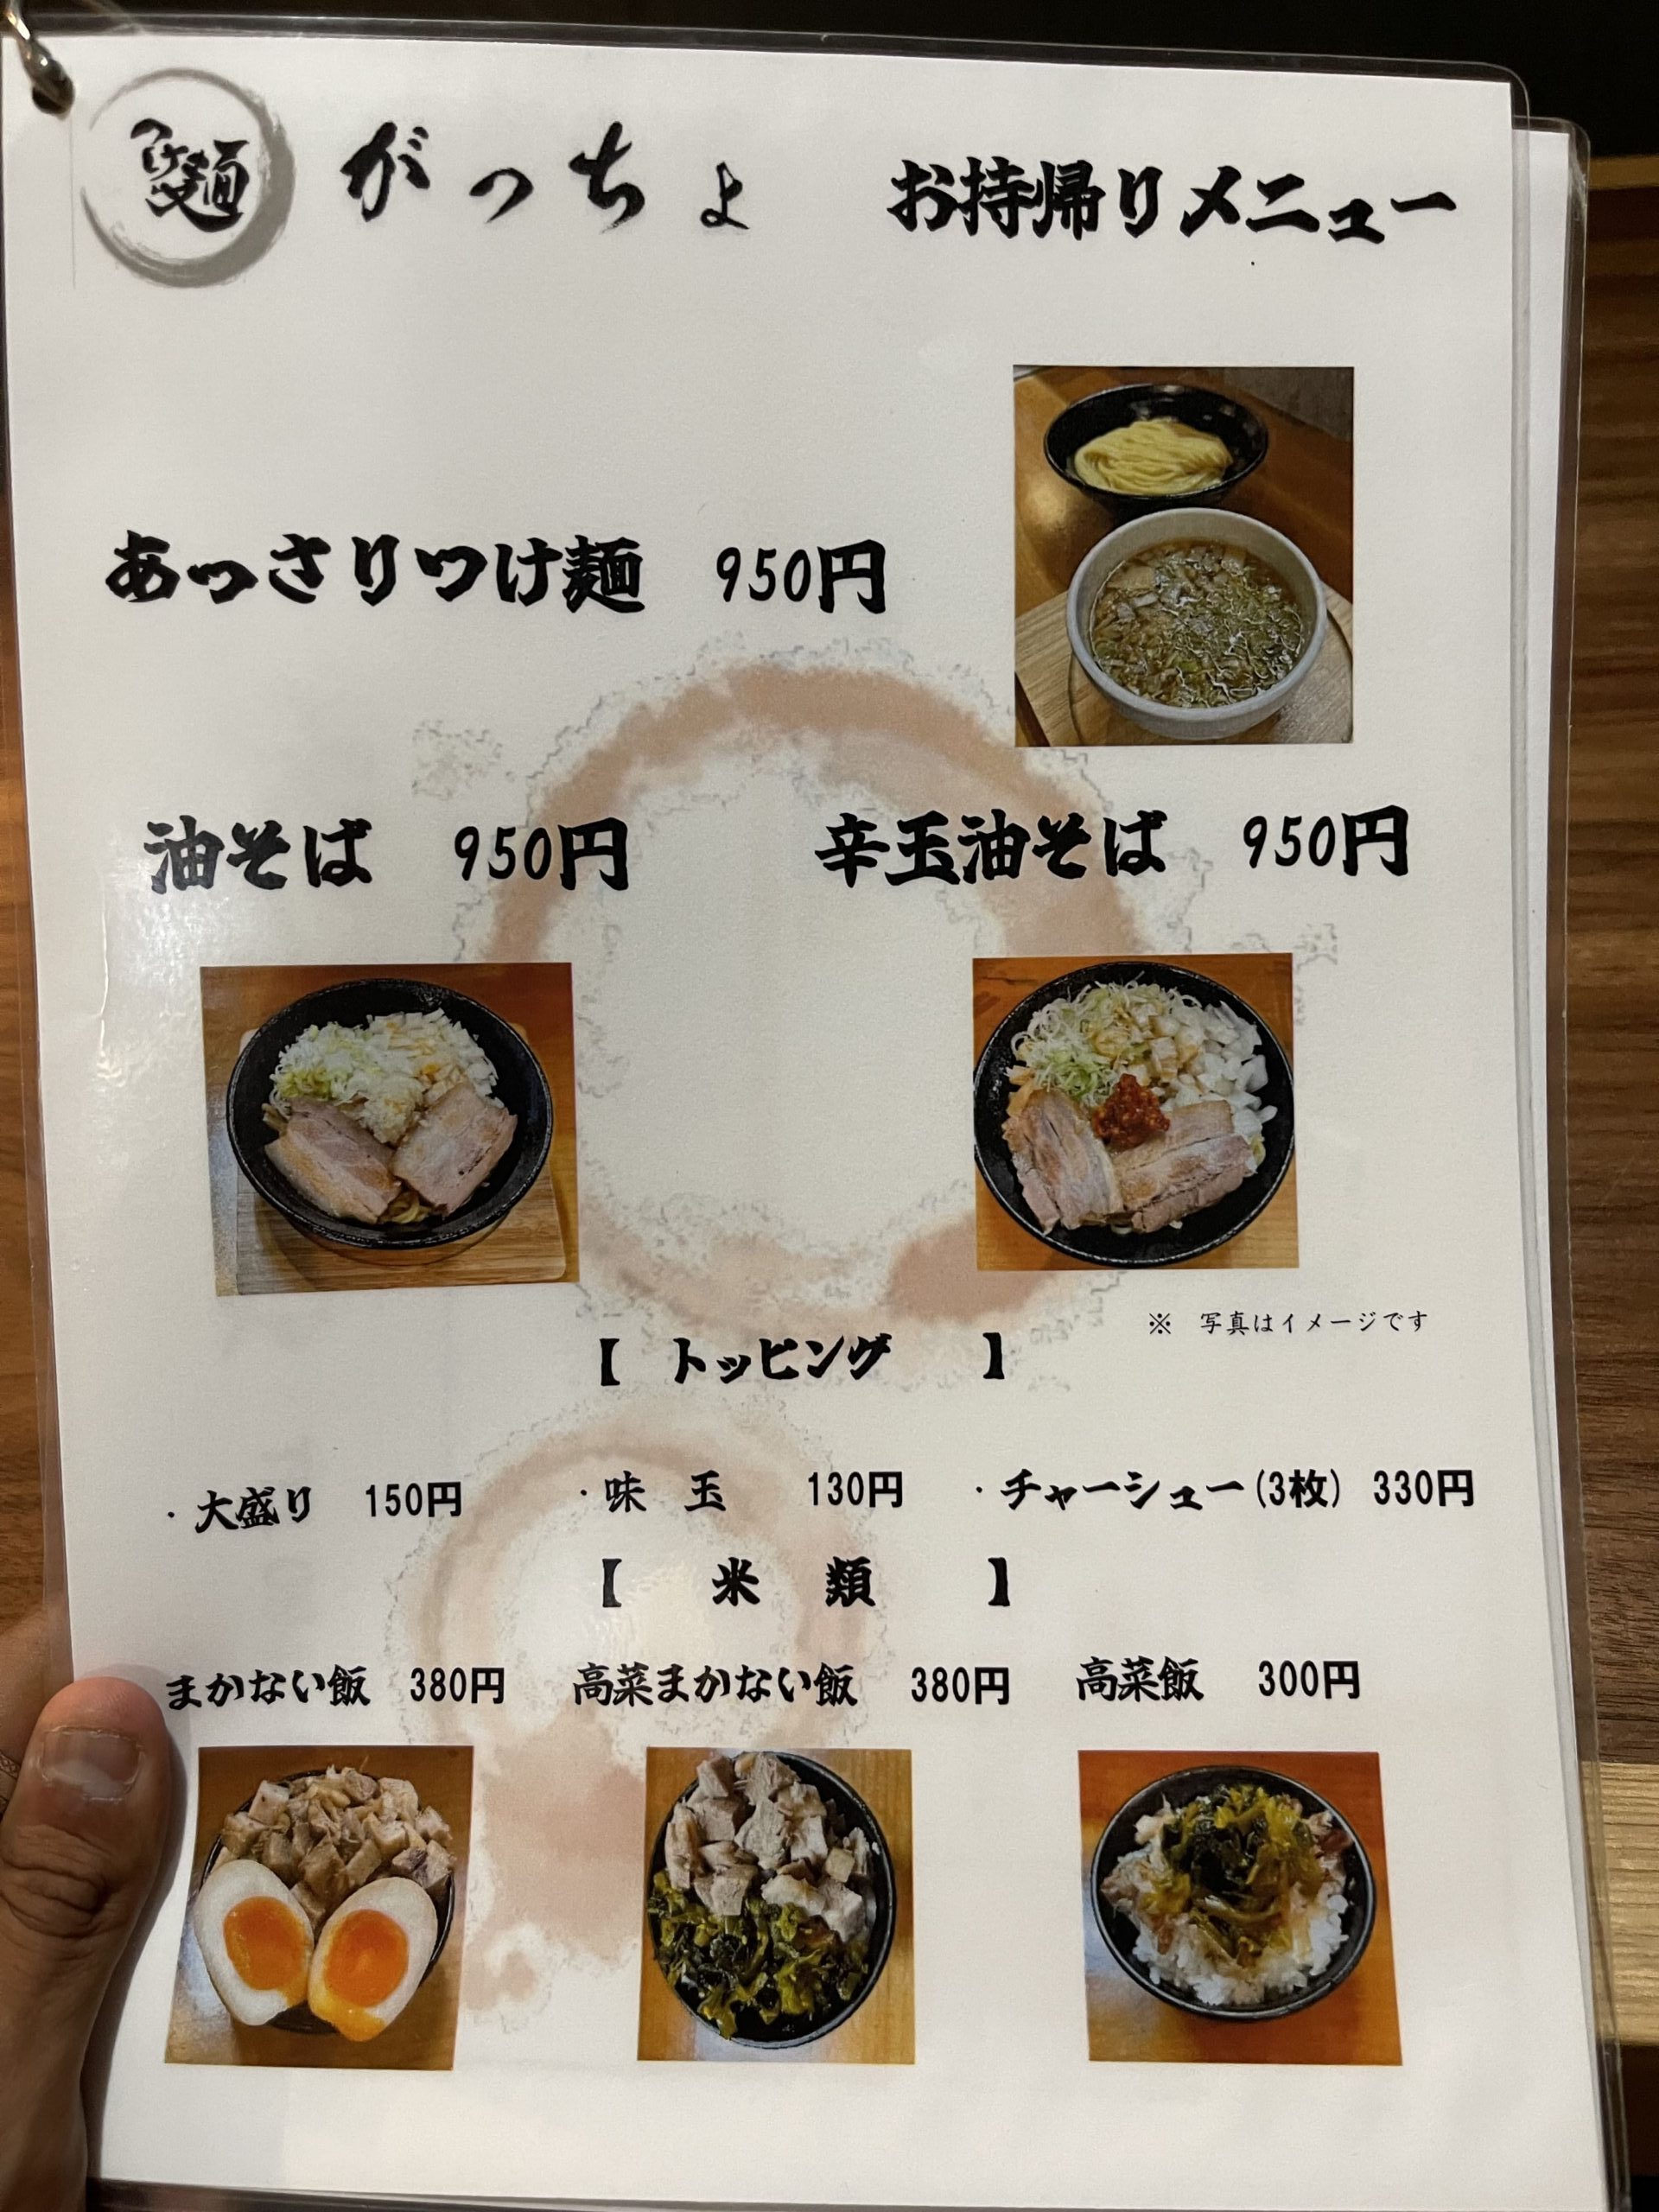 つけ麺 がっちょ お持帰りメニュー
あっさりつけ麺 950円
油そば 950円 辛玉油そば 950円
※ 写真はイメージです
【 トッピング 】
・大盛り 150円 ・味 玉 130円 ・チャーシュー(3枚) 330円
【 米 類 】
まかない飯 380円 高菜まかない飯 380円 高菜飯 300円